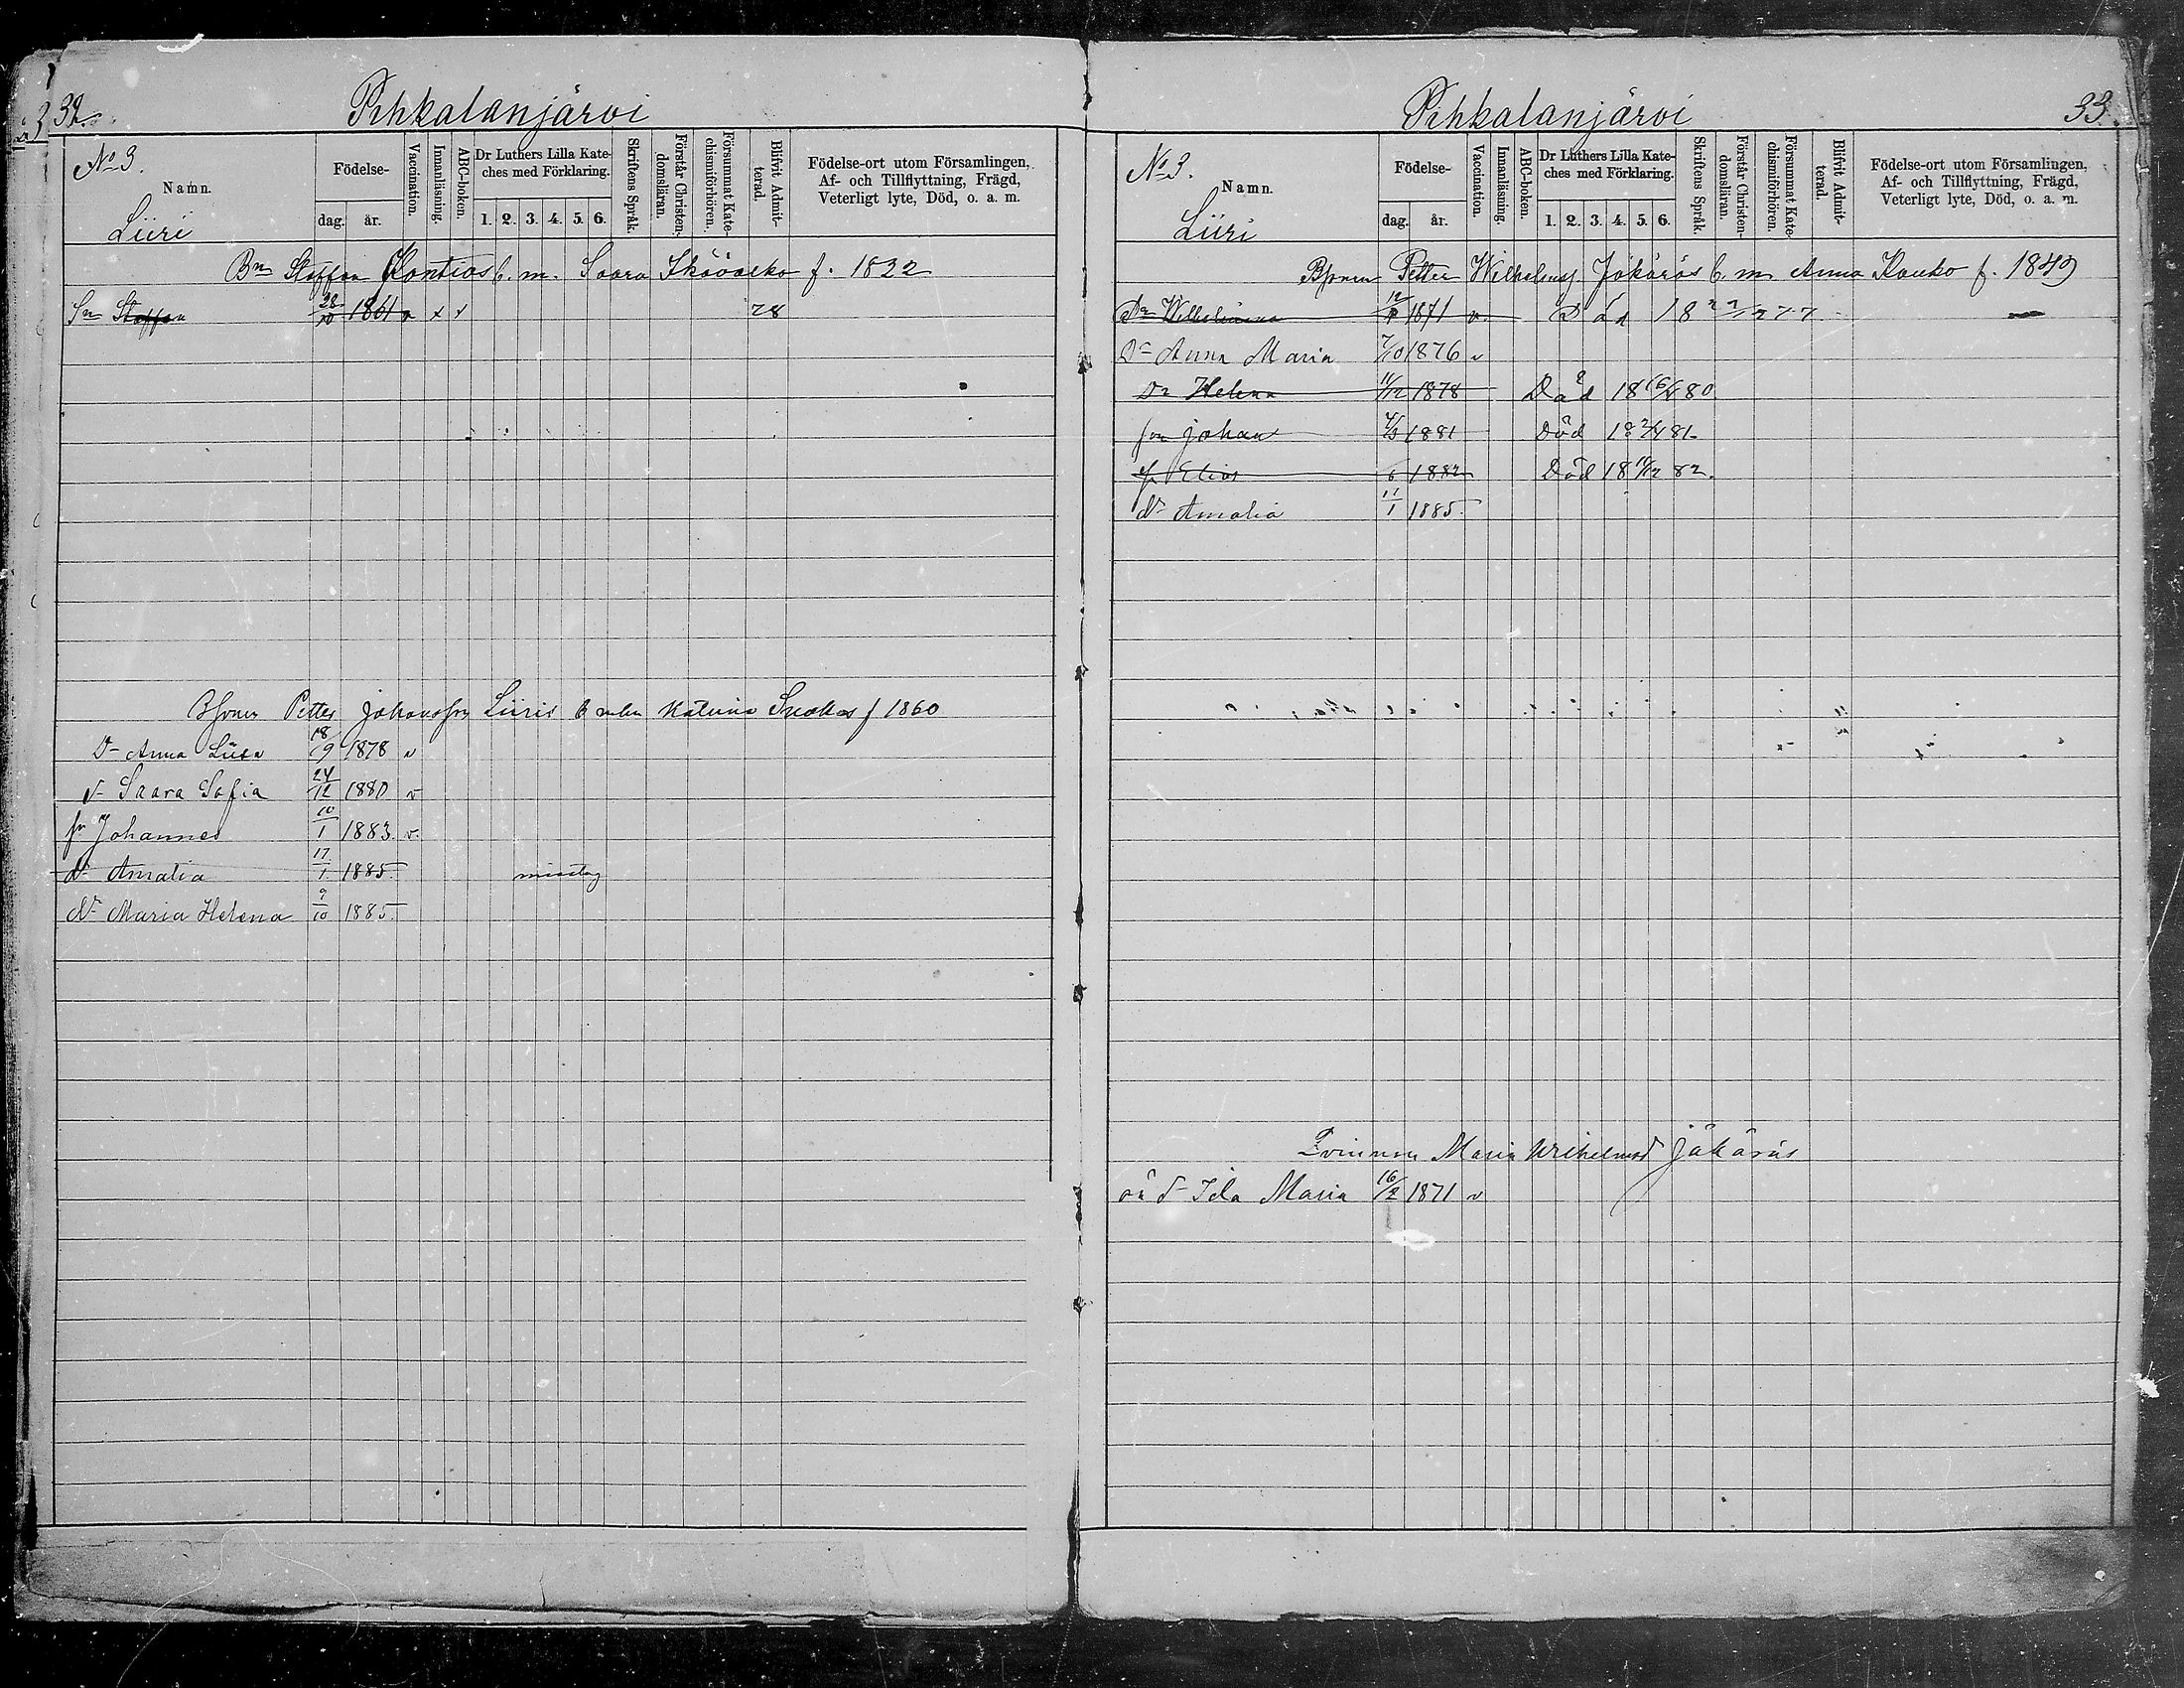 32.
Pihkalanjärvi
No 3.
Namn.
Liiri
Födelse-
dag. år.
Vaccination.
Innanläsning.
ABC-boken.
Dr Luthers Lilla Kate-
ches med Förklaring.
1. 2. 3. 4. 5. 6.
Skriftens Språk.
Förstår Christen-
domsläran.
Försummat Kate-
chismiförhören.
Blifvit Admit-
terad.
Födelse-ort utom Församlingen,
Af- och Tillflyttning, Frägd,
Veterligt lyte, Död, o. a. m.
Bn Staffan Pontios b. m. Saara f. 1822
Sn Staffan 28/10 1861 v x x 78
Petter Johansson Liiris Katrina f 1860
Dr Anna Liisa 18/9 1878 v
dr Saara Sofia 24/12 1880 v
sn Johannes 10/1 1883. v.
dr Amalia 17/1 1885. misstag
dr Maria Helena 9/10 1885.
Pihkalanjärvi
33.
No 3.
Namn.
Liiri
Födelse-
dag. år.
Vaccination.
Innanläsning.
ABC-boken.
Dr Luthers Lilla Kate-
ches med Förklaring.
1. 2. 3. 4. 5. 6.
Skriftens Språk.
Förstår Christen-
domsläran.
Försummat Kate-
chismiförhören.
Blifvit Admit-
terad.
Födelse-ort utom Församlingen,
Af- och Tillflyttning, Frägd,
Veterligt lyte, Död, o. a. m.
Petter Wilhelmss. Jäkäräs b. m. Anna Kauko f. 1849
Dr Wilhelmina 1871 v. Död 18 77
Dr Anna Maria 7/10 1876 v
Dr Helena 11/12 1878 Död 18 80.
sn Johan 4/3 1881 Död 18 81.
Elias 1882 Död 18 82.
dr Amalia 17/1 1885.
Qvinnan Maria Wilhelmsd Jäkäräs
oä dr Ida Maria 16/2 1871 v